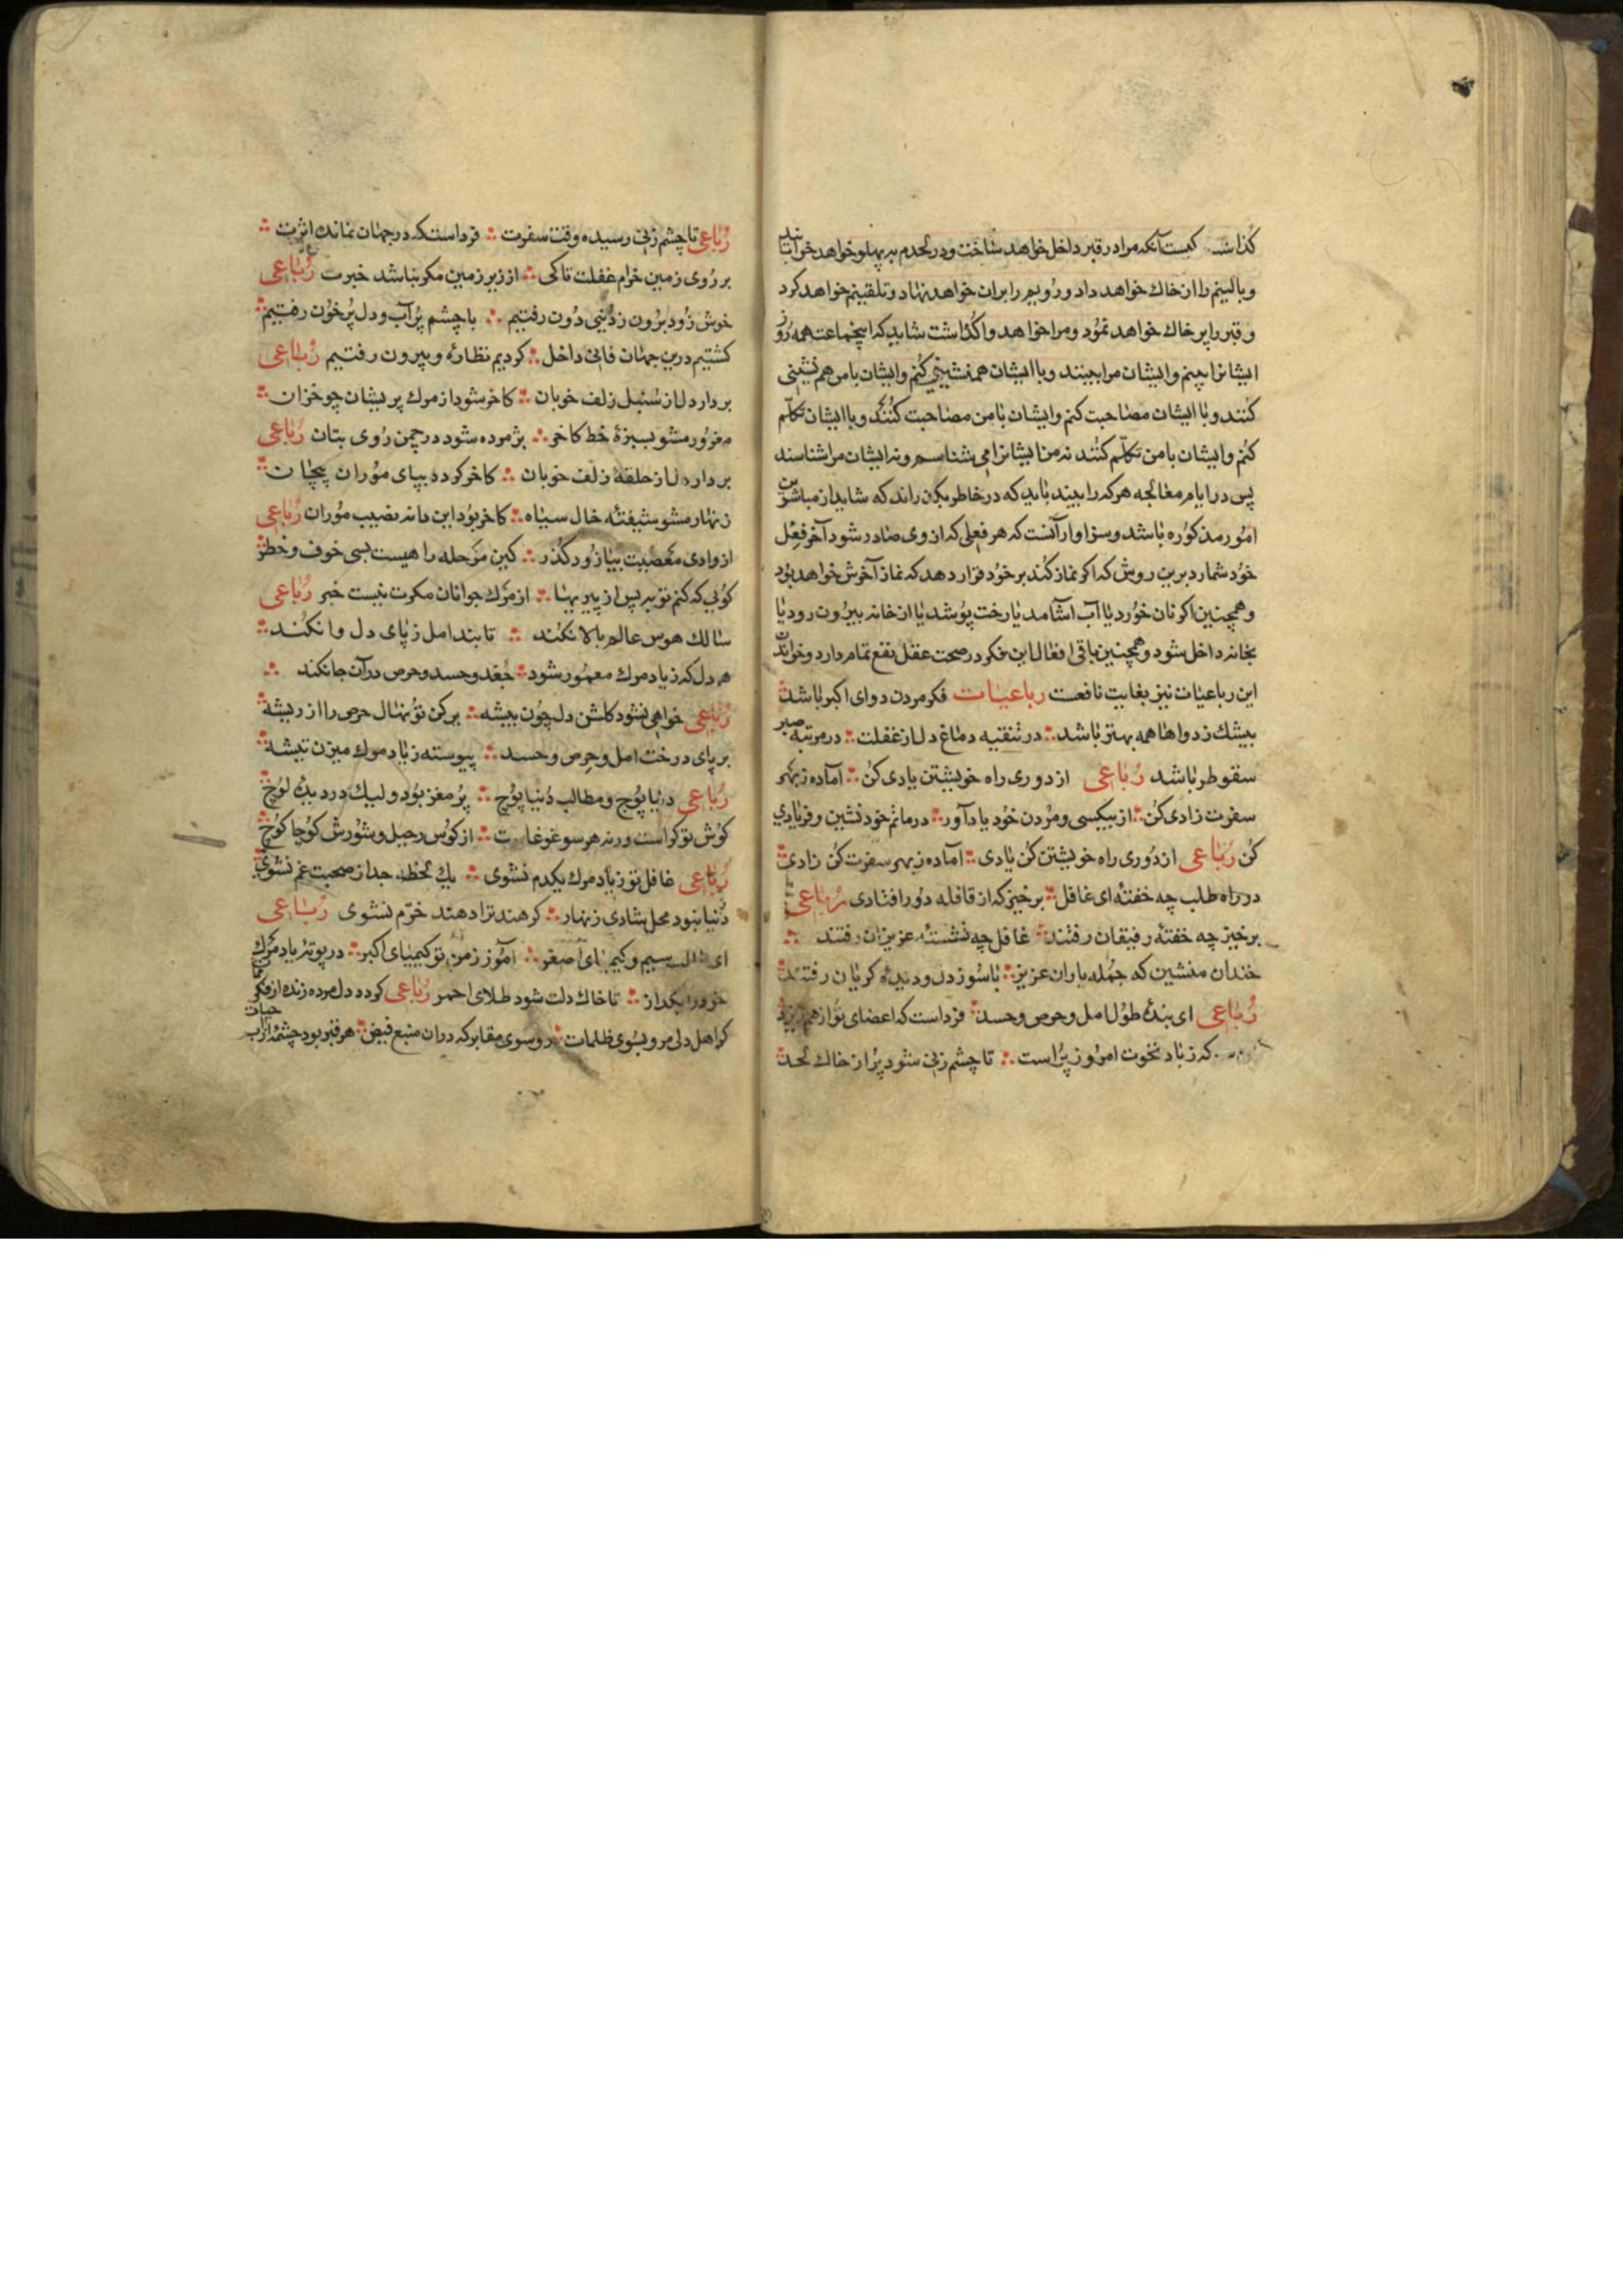 کیست آنکه مرا در قبر داخل خواهد ساخت و در لحدم به پهلو خواهد خوابانید
و بالینم را از خاک خواهد داد و رویم را بران خواهد نهاد و تلقینم خواهد کرد
و قبر را پر خاک خواهد نمود و مرا خواهد واگذاشت شاید که اینجماعت همه روز
ایشانرا بینم و ایشان مرا بینند و با ایشان همنشینی کنم و ایشان با من هم نشینی
کنند و با ایشان مصاحبت کنم و ایشان با من مصاحبت کنند و با ایشان تکلّم
کنم و ایشان با من تکلّم کنند نه من ایشانرا می شناسم و نه ایشان مرا شناسند
پس در ایام معالجه هر که را بیند باید که در خاطر بگذراند که شاید از مباشرین
امور مذکوره باشد و سزاوار آنست که هر فعلی که از وی صادر شود آخر فعل
خود شمارد برین روش که اکر نماز کند بر خود قرار دهد که نماز آخرش خواهد بود
و همچنین اکر نان خورد یا آب آشامد یا رخت پوشد یا از خانه بیرون رود یا
بخانه داخل شود و همچنین باقی افعال این فکر در صحت عقل نفع تمام دارد و خواندن
این رباعیات نیز بغایت نافعست رباعیات فکر مردن دوای اکبر باشد
بیشک ز دواها همه بهتر باشد در تنقیه دماغ دل از غفلت در مرتبه صبر
سقوطر باشد رباعی از دوری راه خویشتن یادی کن آماده ز بهر
سفرت زادی کن از بیکسی و مردن خود یاد آور در ماتم خود نشین و فریادی
کن رباعی از دوری راه خویشتن کن یادی آماده ز بهر سفرت کن زادی
در راه طلب چه خفتهٔ ای غافل برخیز که از قافله دور افتادی رباعی
برخیز چه خفتهٔ رفیقان رفتند غافل چه نشستهٔ عزیزان رفتند
خندان منشین که جمله یاران عزیز با سوز دل و دیدهٔ کریان رفتند
رباعی ای بندهٔ طول امل و حرص و حسد فرداست که اعضای تو از هم ریزد
که ز باد نخوت امروز پر است تا چشم زنی شود پر از خاک لحد
رباعی تا چشم زنی رسیده وقت سفرت فرداست که در جهان نماند اثرت
بر روی زمین خرام غفلت تا کی از زیر زمین مکر نباشد خبرت رباعی
خوش زود برون ز دنیی دون رفتیم با چشم پر آب و دل پر خون رفتیم
کشتیم درین جهان فانی داخل کردیم نظارهٔ و بیرون رفتیم رباعی
بردار دل از سنبل زلف خوبان کاخر شود از مرک پریشان چو خزان
مغرور مشو بسبزهٔ خط کاخر پژمرده شود در چمن روی بتان رباعی
بردار دل از حلقهٔ زلف خوبان کاخر کردد بپای موران پیچان
زنهار مشو شیفتهٔ خال سیاه کاخر بود این دانه نصیب موران رباعی
از وادی معصیت بیا زود کذر کین مرحله را هیست بسی خوف و خطر
کوئی که کنم توبه پس از پیریها از مرک جوانان مکرت نیست خبر رباعی
سالک هوس عالم بالا نکند تا بند امل ز پای دل وا نکند
هر دل که ز یاد مرک معمور شود جغد و حسد و حرص در آن جا نکند
رباعی خواهی نشود کلشن دل چون بیشه برکن تو نهال حرص را از ریشه
بر پای درخت امل و حرص و حسد پیوسته ز یاد مرک میزن تیشه
رباعی دنیا پوج و مطالب دنیا پوج پر مغز بود ولیک در دیدهٔ لوج
کوش تو کر است ورنه هر سو غوغاست از کوس رحیل و شورش کوچا کوچ
رباعی غافل تو ز یاد مرک یکدم نشوی یک لحظه جدا ز صحبت غم نشوی
دنیا نبود محل شادی زنهار کر هند ترا دهند خرّم نشوی رباعی
ای سیم و کیمیای اصغر آموز ز من تو کیمیای اکبر در بوته یاد مرک
خود را بکداز تا خاک دلت شود طلای احمر رباعی کردد دل مرده زنده از فکر
کر اهل دلی مرو بسوی ظلمات رو سوی مقابر که دران منبع فیض هر قبر بود چشمهٔ از آب حیات